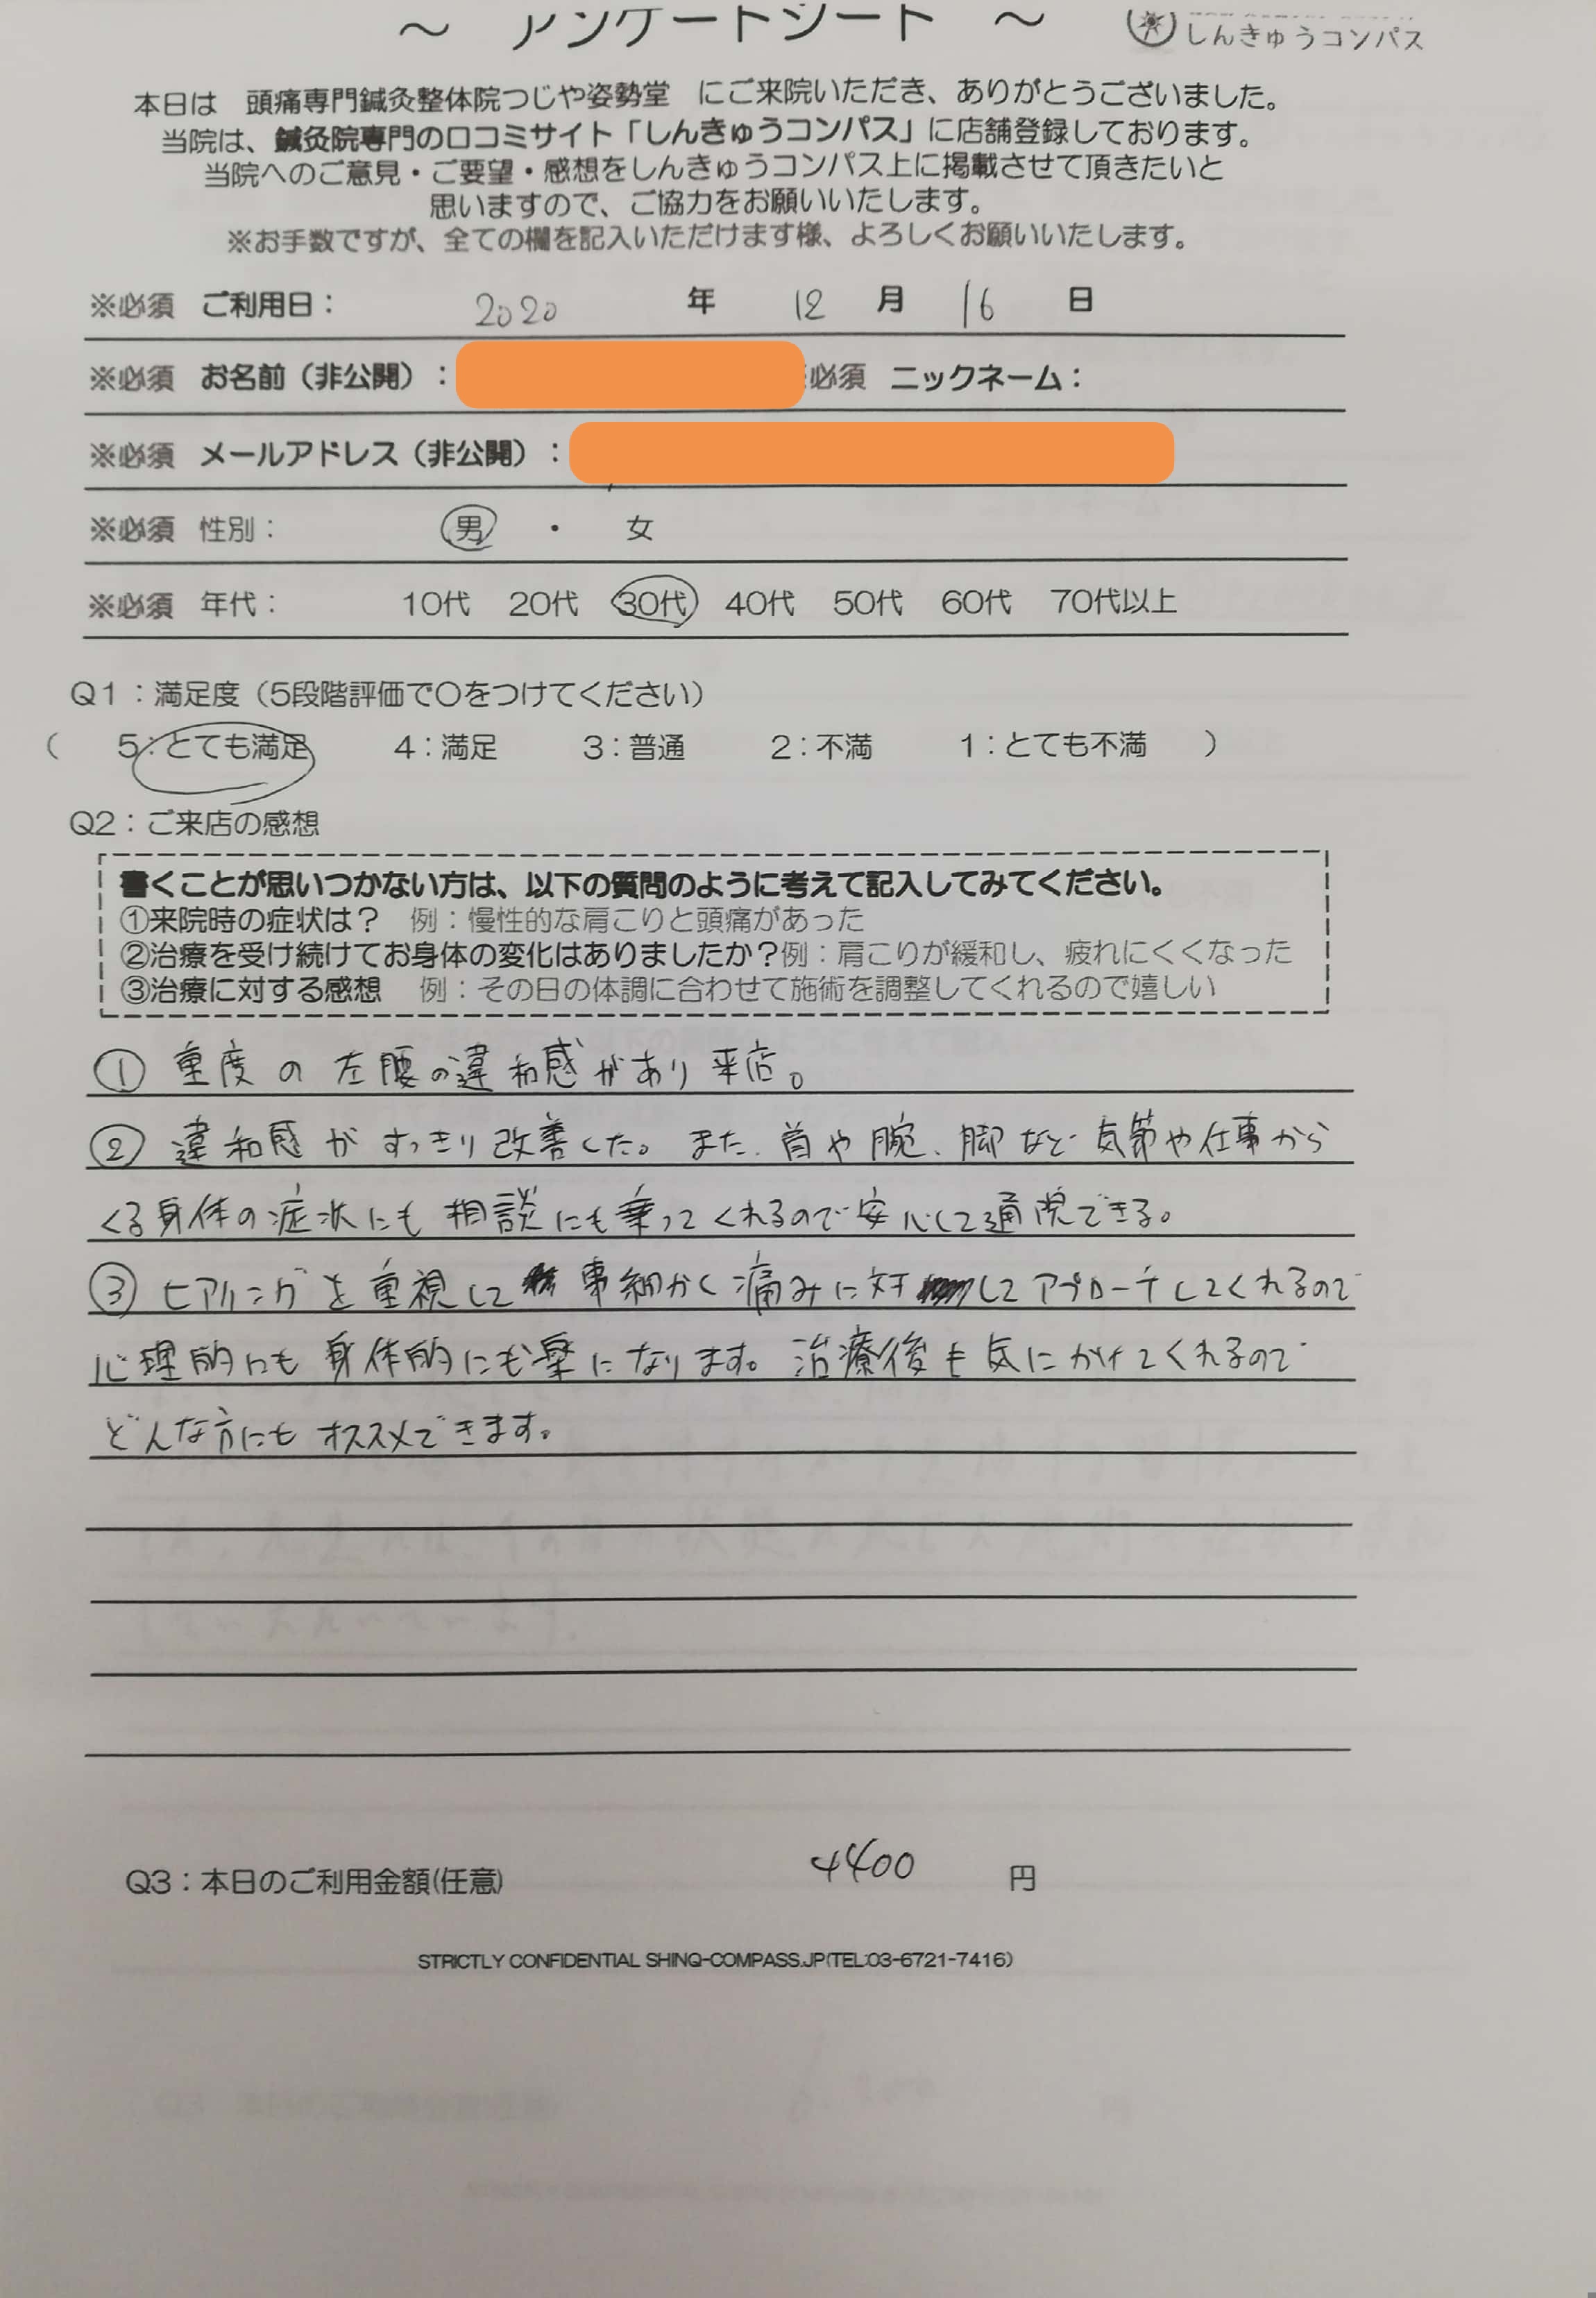 〜 アンケートシート 〜
しんきゅうコンパス
本日は 頭痛専門鍼灸整体院つじや姿勢堂 にご来院いただき、ありがとうございました。
当院は、鍼灸院専門の口コミサイト「しんきゅうコンパス」に店舗登録しております。
当院へのご意見・ご要望・感想をしんきゅうコンパス上に掲載させて頂きたいと
思いますので、ご協力をお願いいたします。
※お手数ですが、全ての欄を記入いただけます様、よろしくお願いいたします。
※必須 ご利用日： 2020 年 12 月 16 日
※必須 お名前（非公開）： 必須 ニックネーム：
※必須 メールアドレス（非公開）：
※必須 性別： 男 ・ 女
※必須 年代： 10代 20代 30代 40代 50代 60代 70代以上
Q1：満足度（5段階評価で〇をつけてください）
（ 5：とても満足 4：満足 3：普通 2：不満 1：とても不満 ）
Q2：ご来店の感想
書くことが思いつかない方は、以下の質問のように考えて記入してみてください。
①来院時の症状は？ 例：慢性的な肩こりと頭痛があった
②治療を受け続けてお身体の変化はありましたか？例：肩こりが緩和し、疲れにくくなった
③治療に対する感想 例：その日の体調に合わせて施術を調整してくれるので嬉しい
① 重度の左腰の違和感があり来店。
② 違和感がすっきり改善した。また、首や腕、脚など気節や仕事から
くる身体の症状にも相談にも乗ってくれるので安心して通院できる。
③ ヒアリングを重視して事細かく痛みに対してアプローチしてくれるので
心理的にも身体的にも楽になります。治療後も気にかけてくれるので
どんな方にもオススメできます。
Q3：本日のご利用金額(任意) 4400 円
STRICTLY CONFIDENTIAL SHINQ-COMPASS.JP(TEL:03-6721-7416)